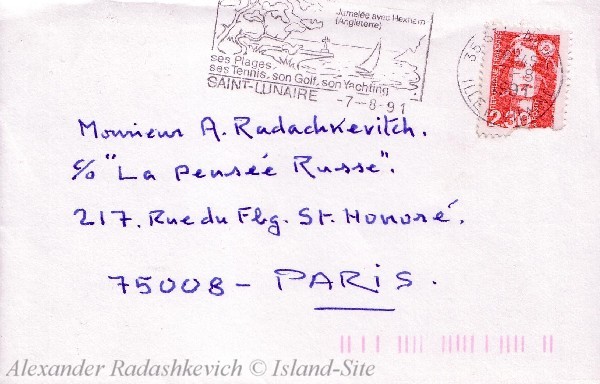 Jumelée avec Hexham
(Angleterre)
ses Plages,
ses Tennis, son Golf, son Yachting
SAINT-LUNAIRE -7-8-91
2,30
Monsieur A. Radachkevitch.
c/o "La Pensée Russe".
217. Rue du Fbg. St. Honoré.
75008 - PARIS.
Alexander Radashkevich © Island-Site